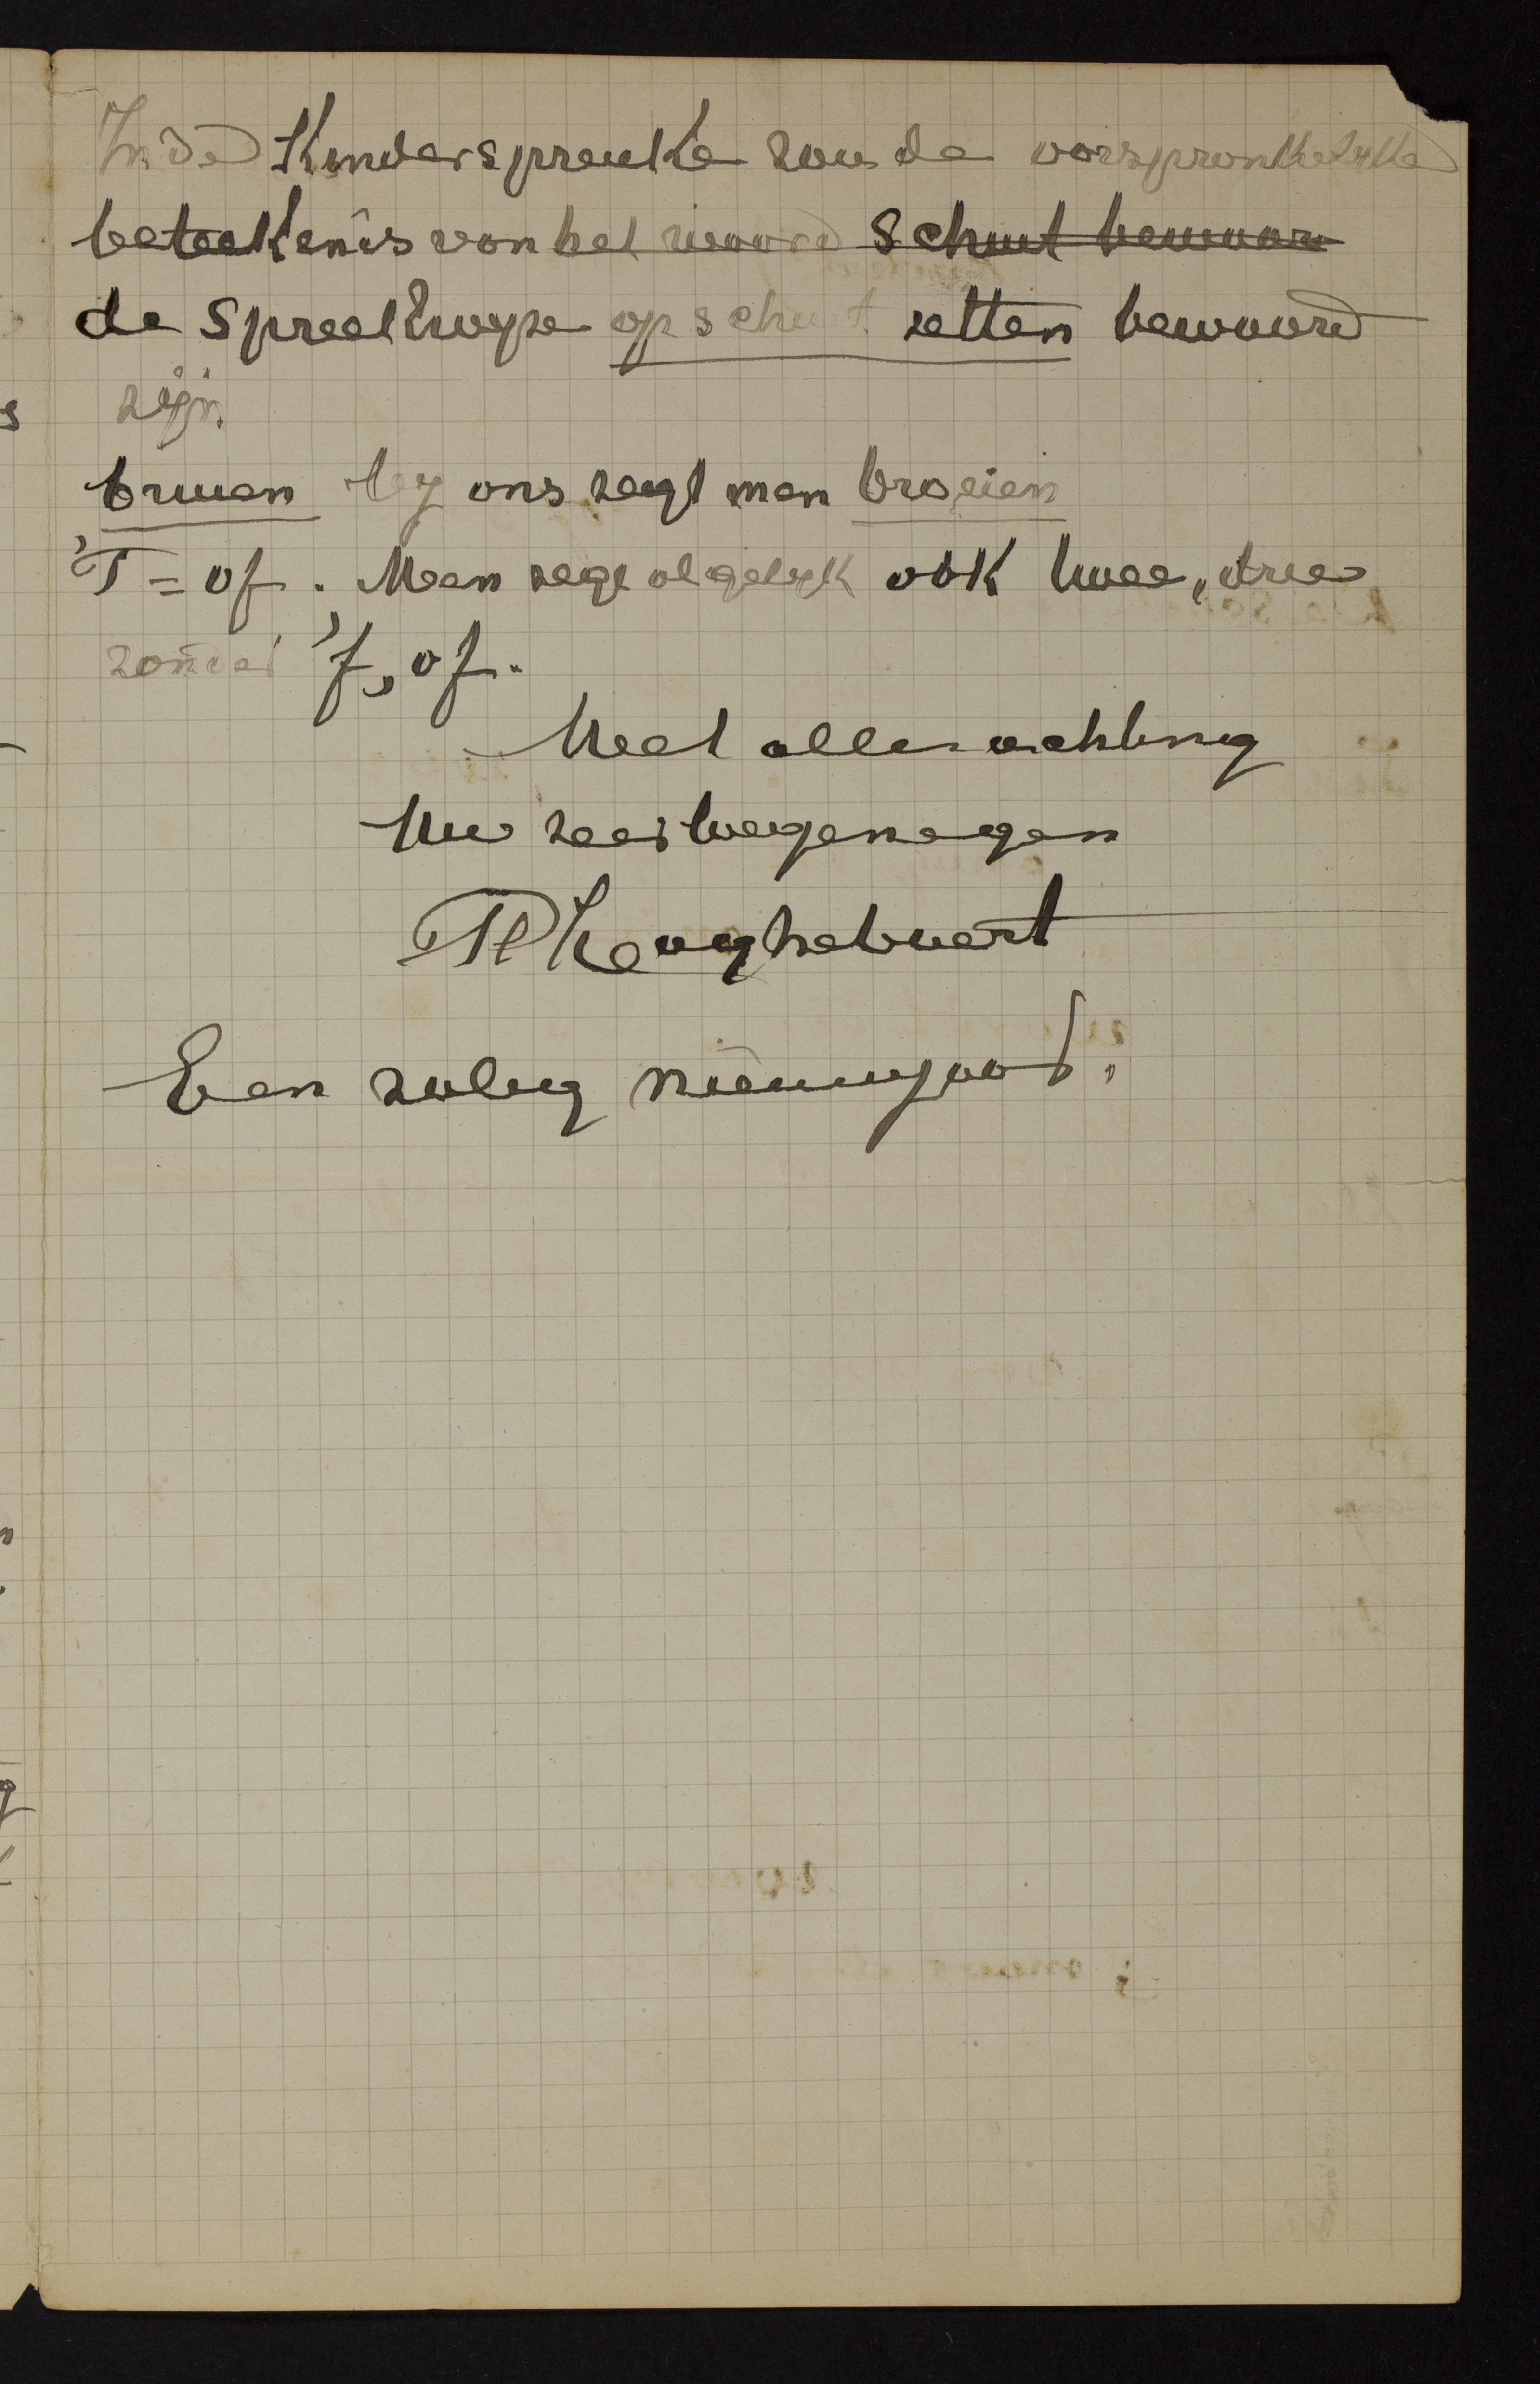 In de Kinderspreuke zou de oorspronkelykke
beteekenis van het woord schuut bewaar
de spreekwyze op schuut zetten bewaard
zijn.
bruen by ons zegt men broeien
'T = of. Men zegt algelyk ook twee, drie
zonder 'f, of.
Met alle achting
Uw zeer toegenegen
Een zalig nieuwjaar.